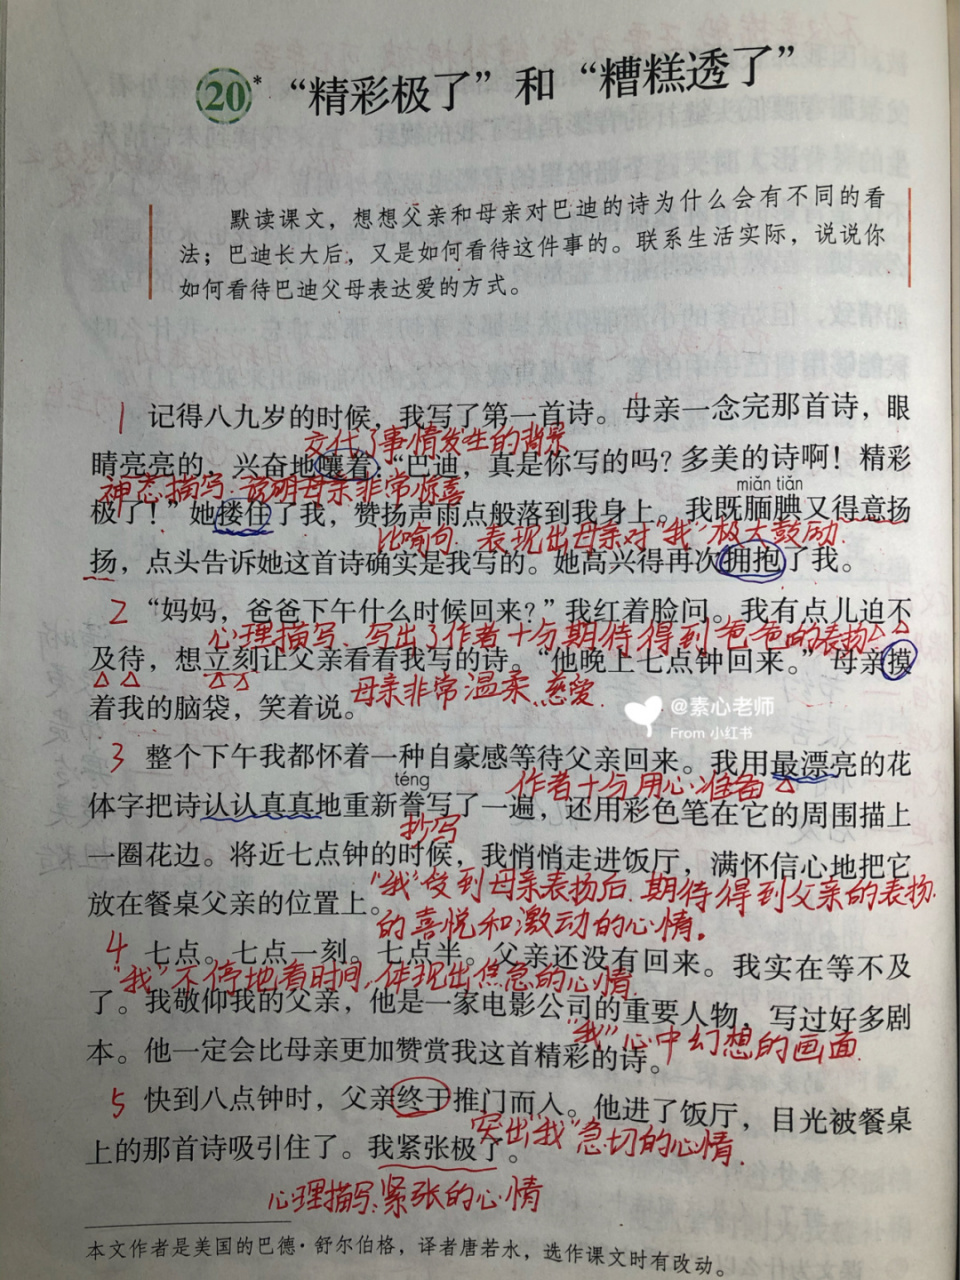 20* “精彩极了”和“糟糕透了”
默读课文，想想父亲和母亲对巴迪的诗为什么会有不同的看
法；巴迪长大后，又是如何看待这件事的。联系生活实际，说说你
如何看待巴迪父母表达爱的方式。
1 记得八九岁的时候，我写了第一首诗。母亲一念完那首诗，眼
交代了事情发生的背景
睛亮亮的，兴奋地嚷着：“巴迪，真是你写的吗？多美的诗啊！精彩
神态描写：说明母亲非常惊喜
miǎn tiǎn
极了！”她搂住了我，赞扬声雨点般落到我身上。我既腼腆又得意扬
比喻句，表现出母亲对“我”极大鼓励.
扬，点头告诉她这首诗确实是我写的。她高兴得再次拥抱了我。
2 “妈妈，爸爸下午什么时候回来？”我红着脸问。我有点儿迫不
心理描写：写出了作者十分期待得到爸爸的表扬
及待，想立刻让父亲看看我写的诗。“他晚上七点钟回来。”母亲摸
母亲非常温柔.慈爱.
着我的脑袋，笑着说。
@素心老师
From 小红书
3 整个下午我都怀着一种自豪感等待父亲回来。我用最漂亮的花
téng
作者十分用心准备
体字把诗认认真真地重新誊写了一遍，还用彩色笔在它的周围描上
抄写
一圈花边。将近七点钟的时候，我悄悄走进饭厅，满怀信心地把它
“我”受到母亲表扬后.期待得到父亲的表扬.
放在餐桌父亲的位置上。
的喜悦和激动的心情。
4 七点。七点一刻。七点半。父亲还没有回来。我实在等不及
“我”不停地看时间，体现出焦急的心情.
了。我敬仰我的父亲，他是一家电影公司的重要人物，写过好多剧
“我”心中幻想的画面.
本。他一定会比母亲更加赞赏我这首精彩的诗。
5 快到八点钟时，父亲终于推门而入。他进了饭厅，目光被餐桌
突出“我”急切的心情.
上的那首诗吸引住了。我紧张极了。
心理描写：紧张的心情
本文作者是美国的巴德·舒尔伯格，译者唐若水，选作课文时有改动。